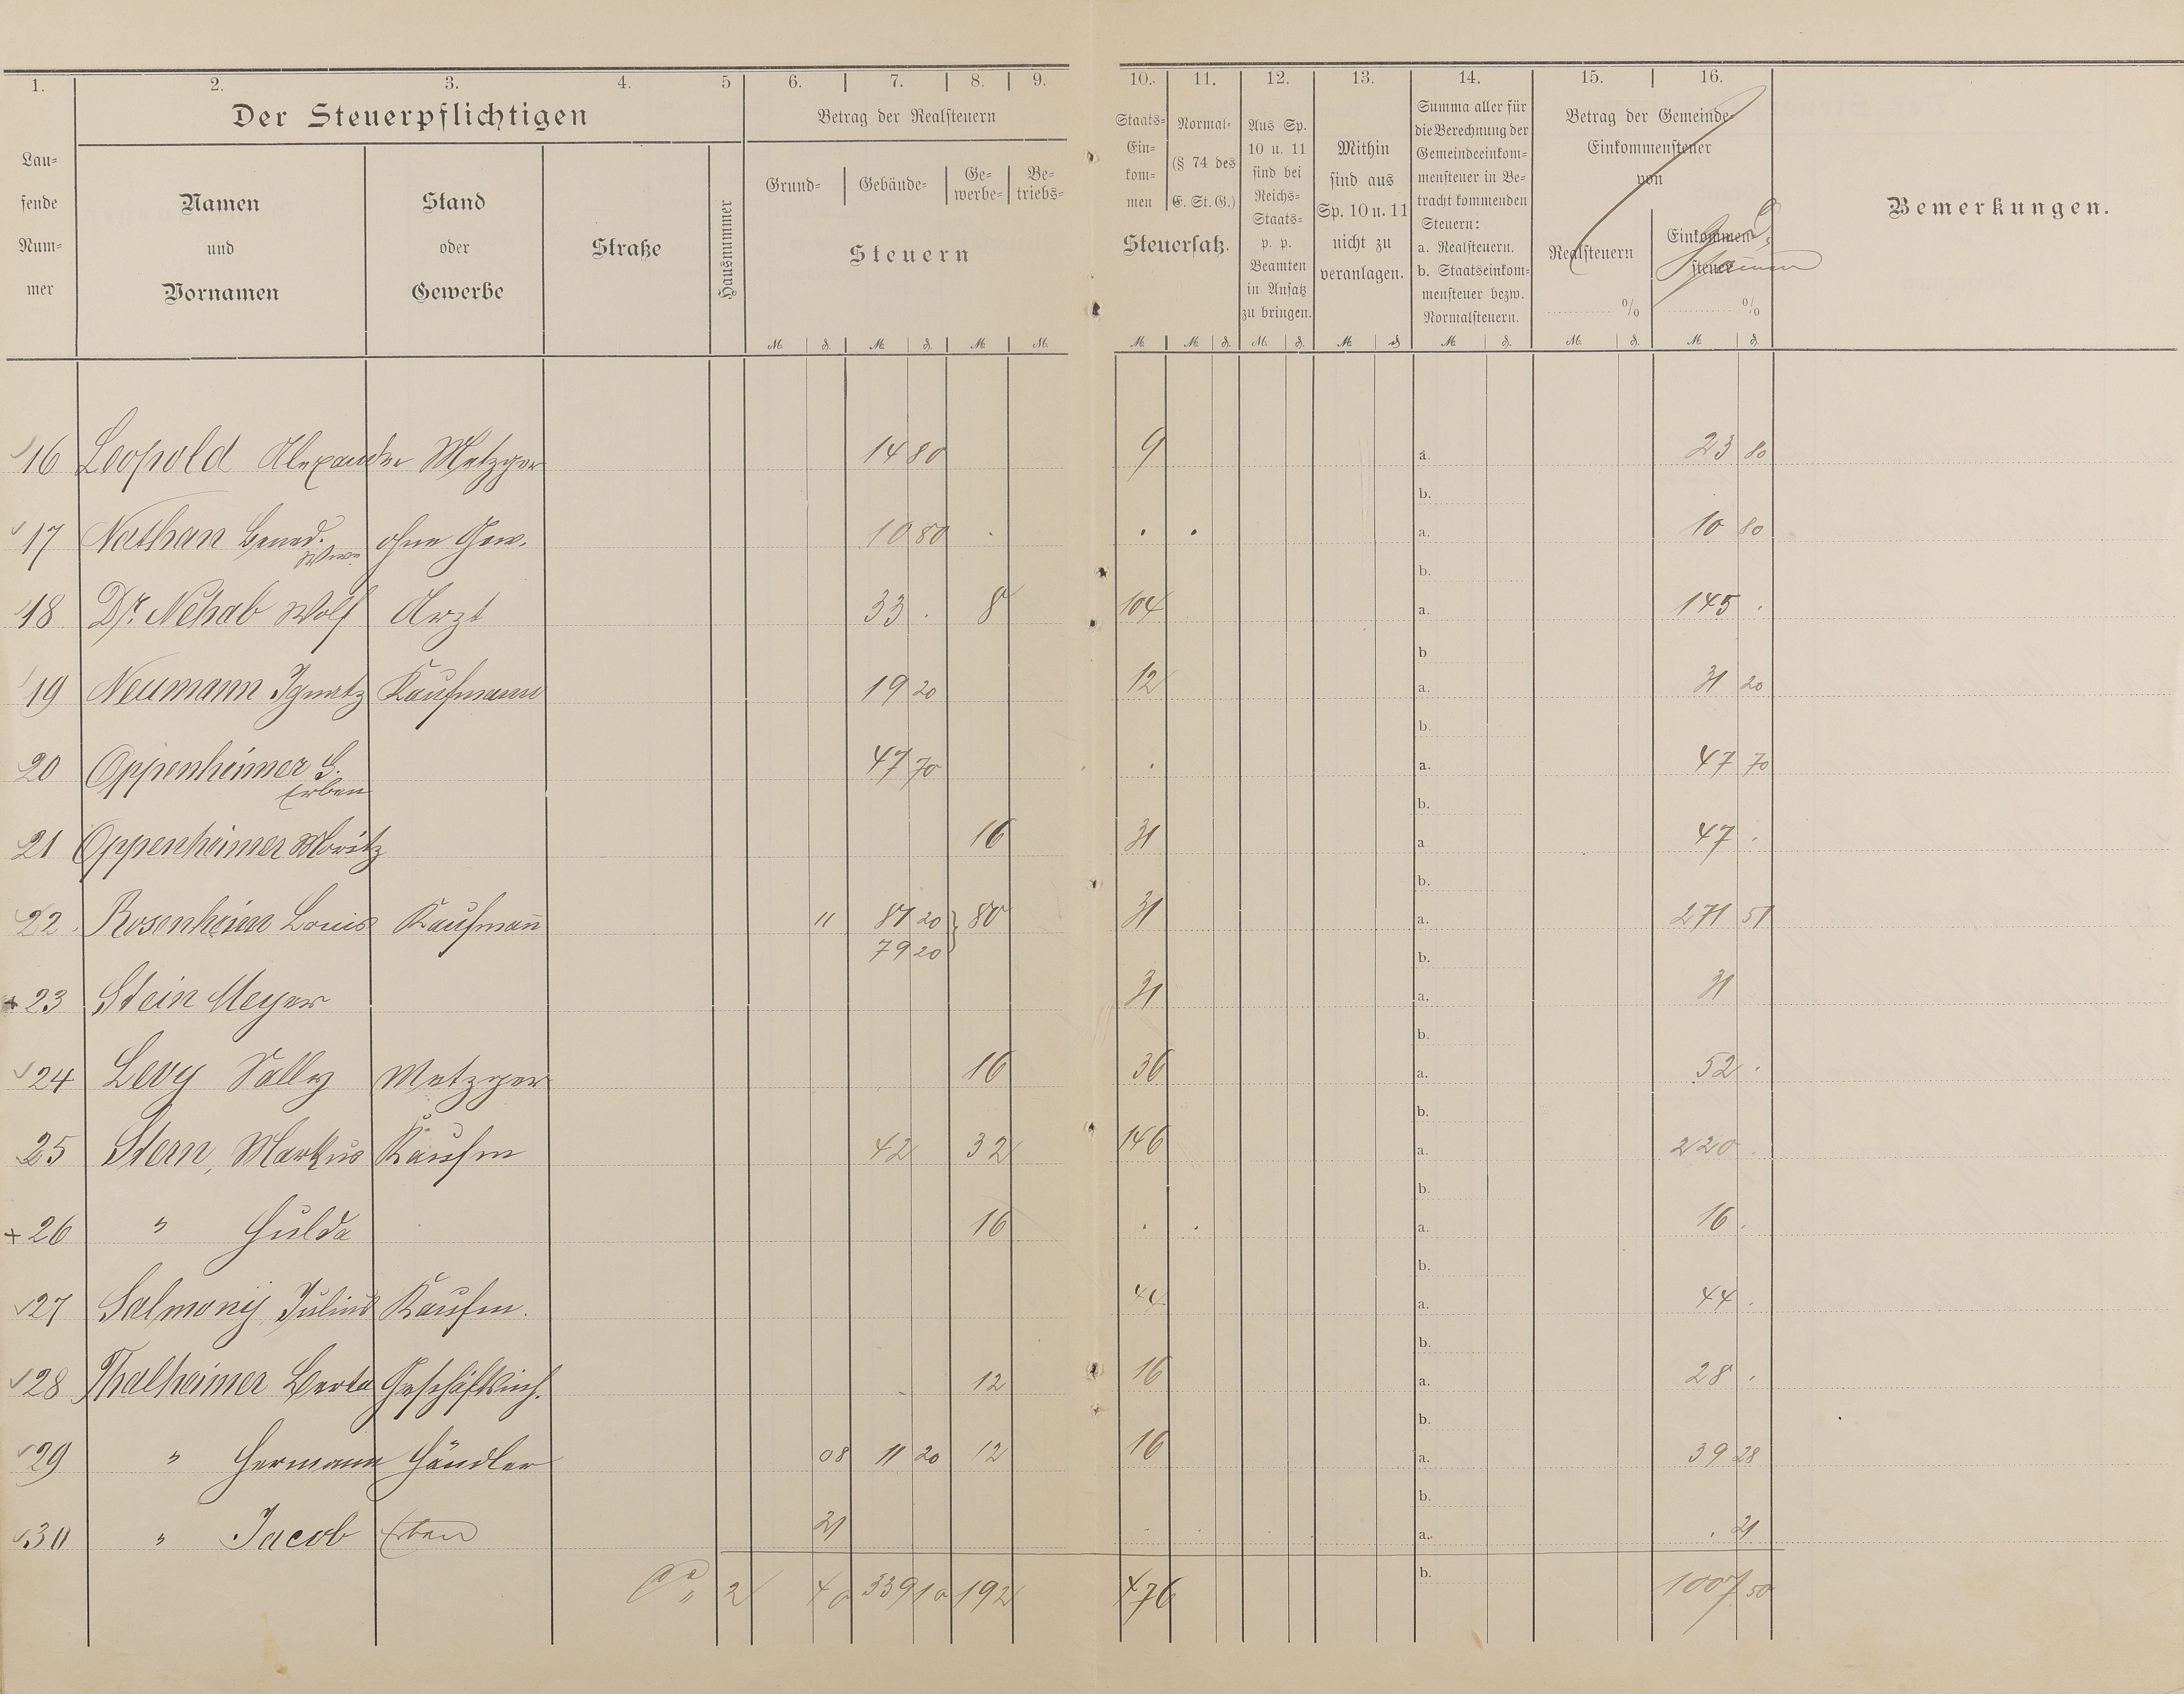 1. 2. 3. 4. 5 6. 7. 8. 9. 10. 11. 12. 13. 14. 15. 16.
Der Steuerpflichtigen
Lau-
fende
Num-
mer
Namen
und
Vornamen
Stand
oder
Gewerbe
Straße
Hausnummer
Betrag der Realsteuern
Grund- Gebäude- Ge-
werbe- Be-
triebs-
Steuern
Staats-
Ein-
kom-
men
Normal-
(§ 74 des
E. St. G.)
Steuersatz.
Aus Sp.
10 u. 11
sind bei
Reichs-
Staats-
p. p.
Beamten
in Ansatz
zu bringen.
Mithin
sind aus
Sp. 10 u. 11
nicht zu
veranlagen.
Summa aller für
die Berechnung der
Gemeindeeinkom-
mensteuer in Be-
tracht kommenden
Steuern:
a. Realsteuern.
b. Staatseinkom-
mensteuer bezw.
Normalsteuern.
Betrag der Gemeinde-
Einkommensteuer
von
Realsteuern
%
Einkommen-
steuer
%
Bemerkungen.
M. ₰. M. ₰. M. M. M. M. ₰. M. ₰. M. ₰ M. ₰. M. ₰. M. ₰.
16 Leopold Alexander Metzger 14 80 9 a. 23 80
b.
17 Nathan Bened. Wwe. ohne Gew. 10 80 . . . a. 10 80
b.
18 Dr. Nehab Wolf Arzt 33 . 8 104 a. 145 .
b
19 Neumann Ignatz Kaufmann 19 20 12 a. 31 20
b.
20 Oppenheimer S. Erben 47 70 . a. 47 70
b.
21 Oppenheimer Moritz 16 31 a 47 .
b.
22 Rosenheim Louis Kaufmann 11 81 20 80 31 a. 271 51
79 20 b.
+ 23 Stein Meyer 31 a. 31
b.
24 Levy Sally Metzger 16 36 a. 52 .
b.
25 Stern, Markus Kaufm 42 32 146 a. 220 .
b.
+ 26 " Hulda 16 . . a. 16 .
b.
27 Salmony Julius Kaufm. 44 a. 44 .
b.
28 Thalheimer Berta Geschäftsinh. 12 16 a. 28 .
b.
29 " Hermann Händler 08 11 20 12 16 a. 39 28
b.
30 " Jacob Erben 21 a. . 21
2 40 339 10 192 476 b. 1007 50